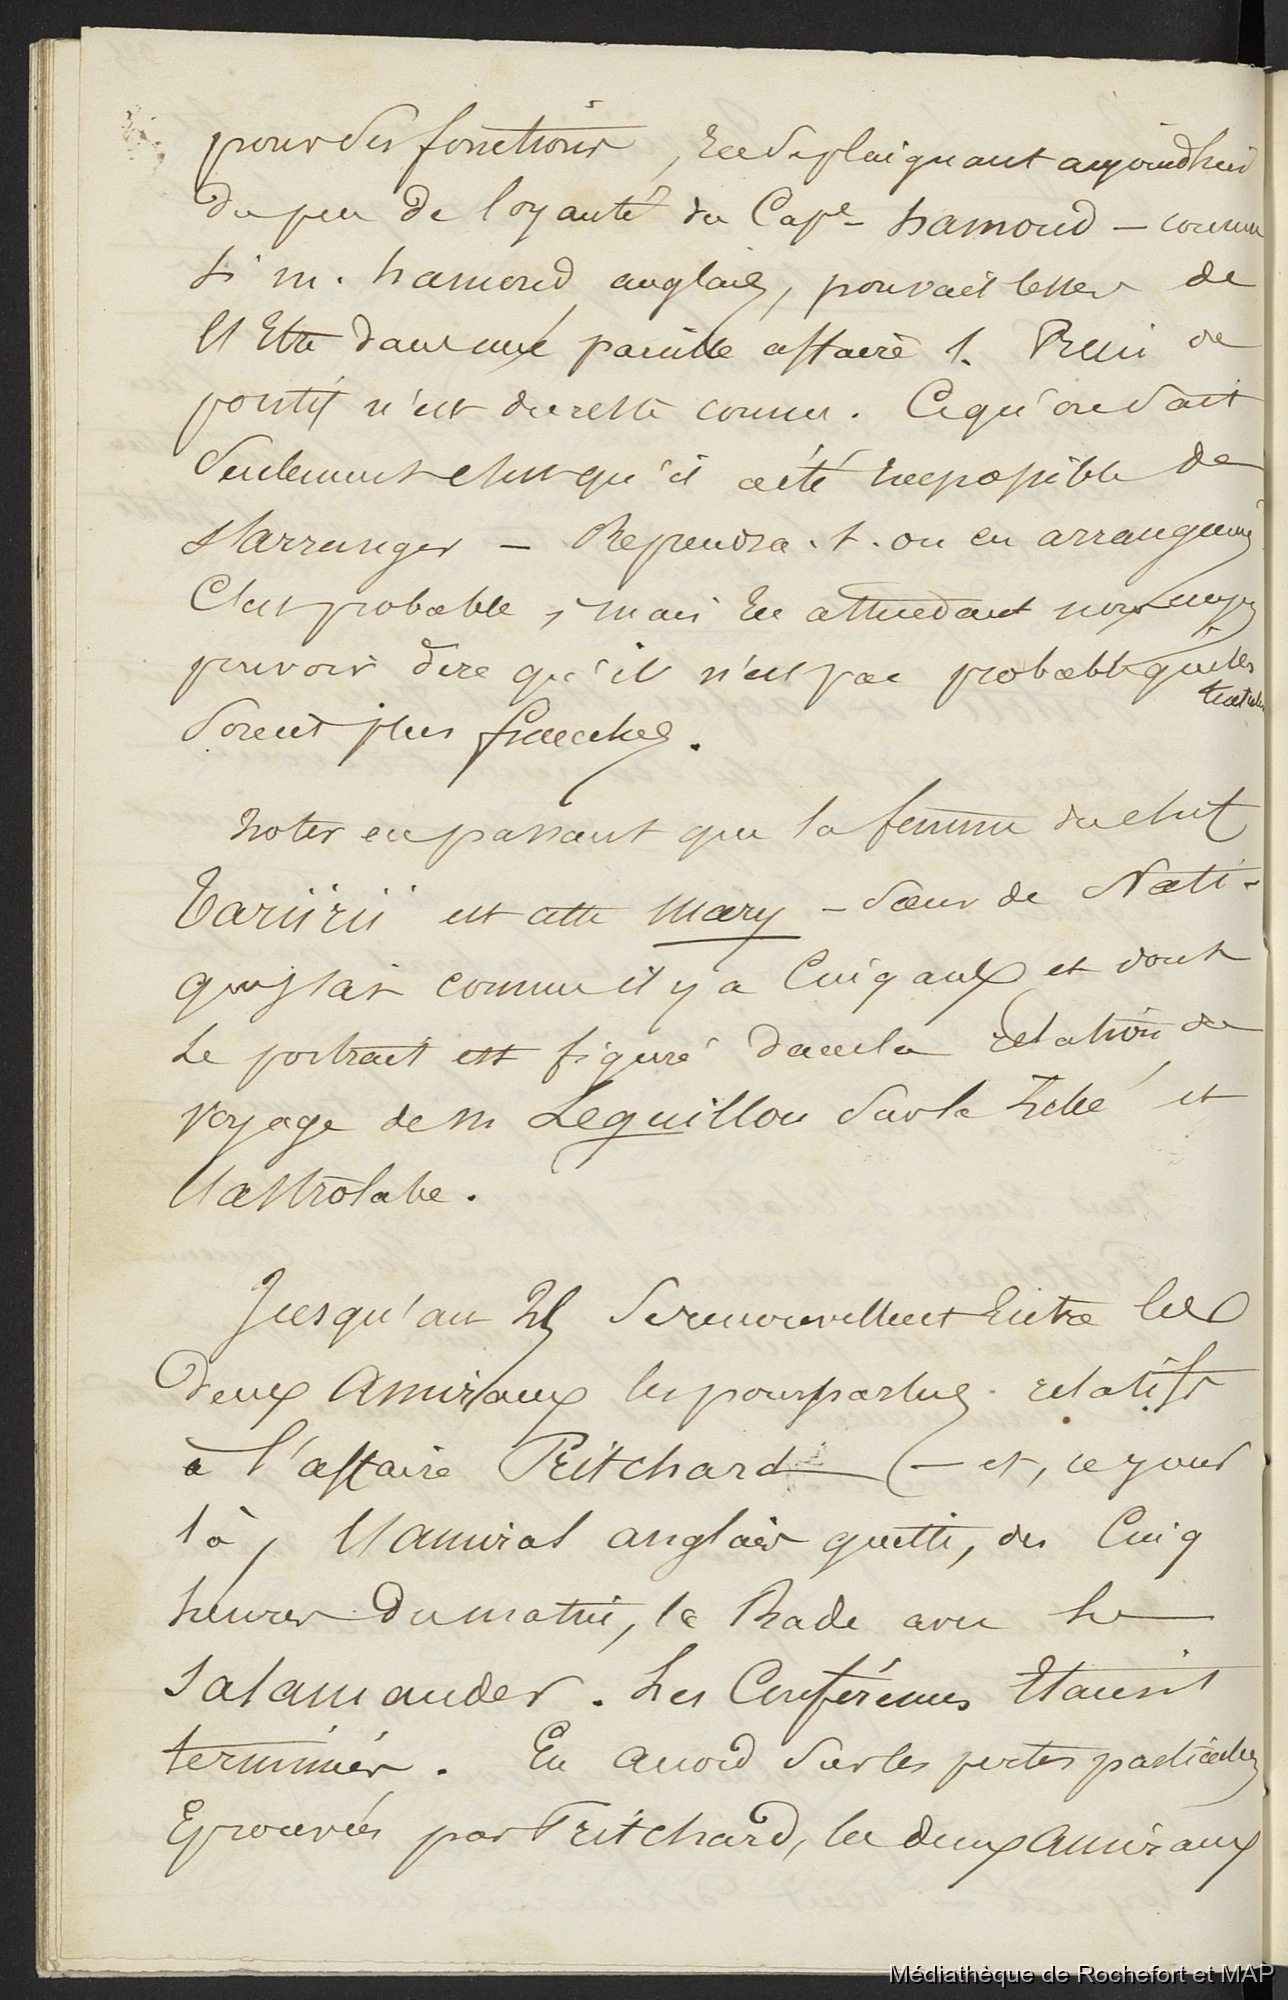 pour ses fonctions, en se plaignant aujourdhui
du peu de loyauté du Cape - hamond - comme
si m. hamond anglais, pouvait cesser de
l'Etre dans une pareille affaire !. Rien de
positif n'est du reste connu. Ce qu'on sait
seulement c'est qu'il a été impossible de
s'arranger - Reprendra-t-on ces arrangemens
C'est probable, mais en attendant nous
pouvons dire qu'il n'est pas probable qu'elles
soient plus franches.
noter en passant que la femme du chef
Tariirii est cette Mary - soeur de Nati-
qu'on j'ai connue il y a Cinq ans et dont
le portrait est figuré dans la relation du
voyage de m Leguillou sur la Zélée et
l'astrolabe.
Jusqu'au 25 se renouvellent Entre les
deux Amiraux les pourparlers relatifs
à l'affaire Pritchard - et, ce jour
là, l'amiral anglais quitte, dès Cinq
heures du matin, la Rade avec le
Salamander. Les Conférences Etaient
terminées. En accord sur les pertes particulières
Eprouvées par Pritchard, les deux amiraux
Médiathèque de Rochefort et MAP